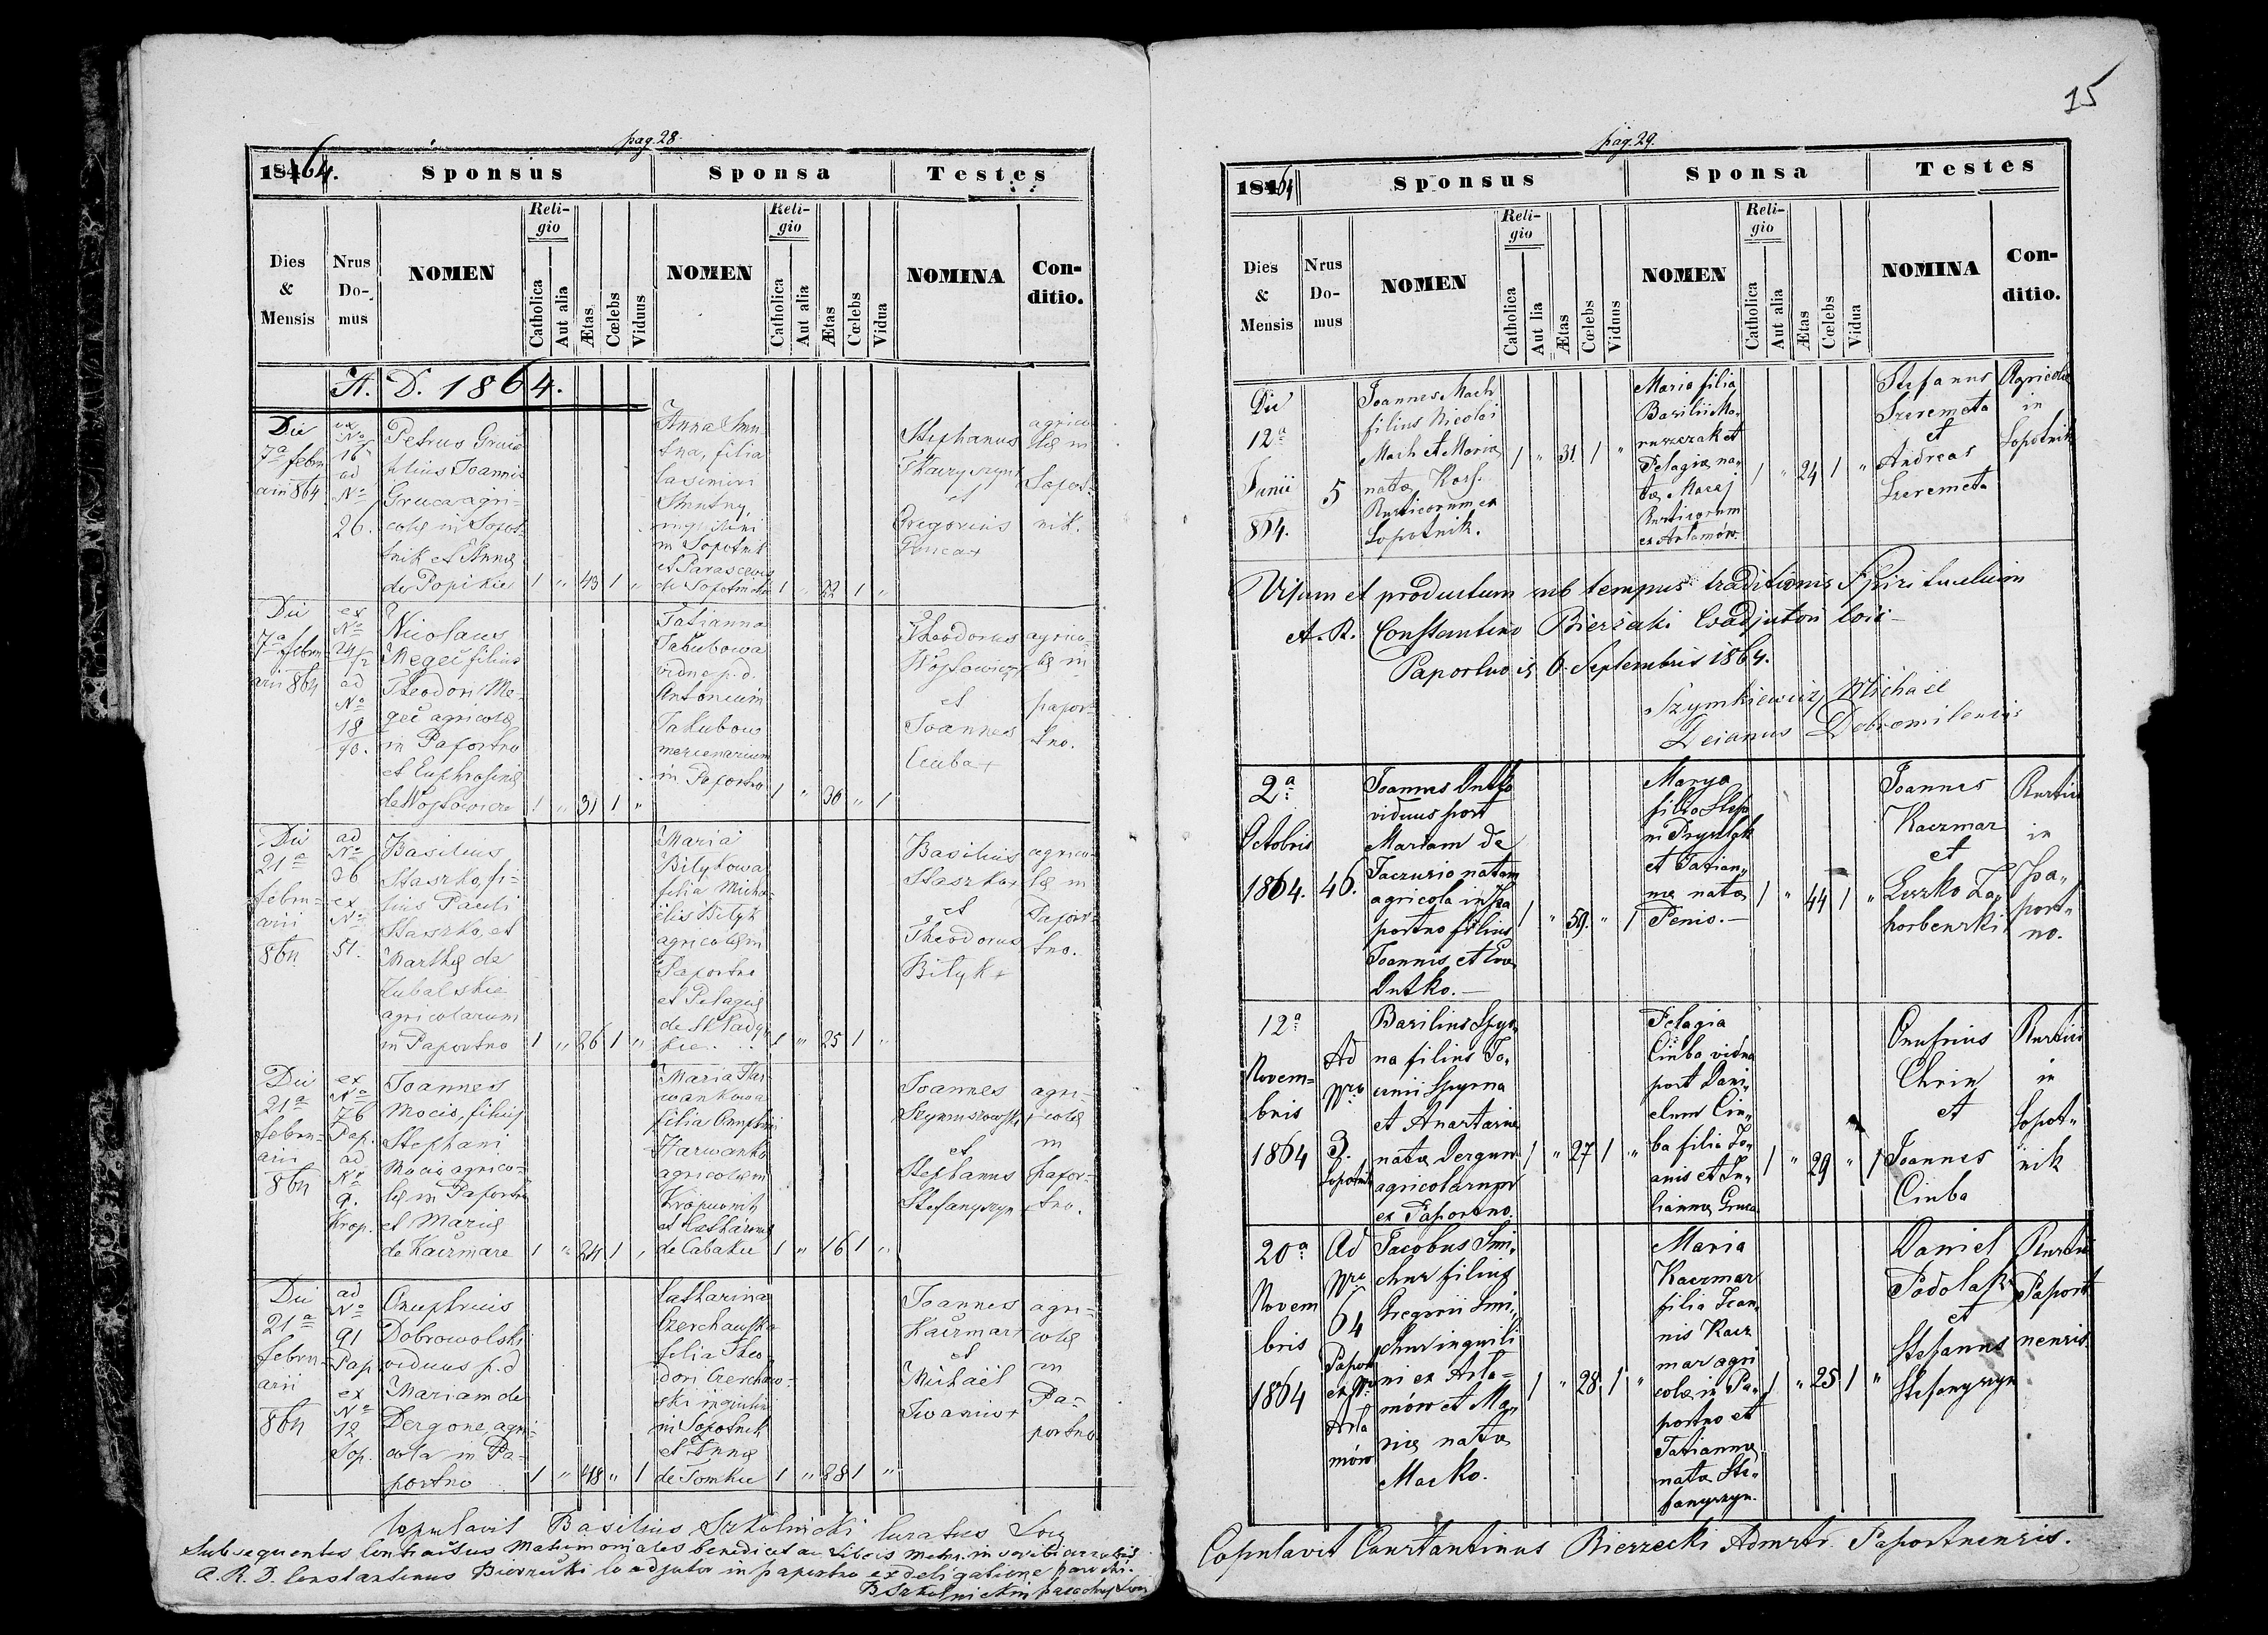 pag. 28.
1864. Sponsus Sponsa Testes
Dies & Mensis
Nrus Domus
NOMEN
Religio
Catholica
Aut alia
Ætas
Cœlebs
Viduus
NOMEN
Religio
Catholica
Aut alia
Ætas
Cœlebs
Vidua
NOMINA
Conditio.
A. D. 1864.
Die
7a febru
arii 864
ex
No
16
ad
No
26.
Petrus Gruca
filius Joannis
Gruca agri-
colæ in Sopot-
nik et Annæ
de Popikie
1 " 43 1 "
Anna Smu
tna, filia
Casimiri
Smutny,
inquilini
in Sopotnik
et Parascevæ
1 " 22 1 "
Stephanus
et
Gregorius
Gruca +
agrico
læ in
Sopot-
nik.
Die
7a febru
arii 864
ex
No
24/2
ad
No
18
Nicolaus
Megeć filius
Theodori Me-
geć agricolæ
in Paportno
et Euphrosinæ
1 " 31 1 "
Tatianna
Jakubowa
vidua p. d.
Antonium
Jakubow
mercenarium
in Paportno
1 " 36 " 1
Theodorus
et
Joannes
Ciuba +
agrico-
læ in
papor-
tno.
Die
21a
febru-
arii
864
ad
No
36
ex
No
51.
Basilius
Staszko, fi-
lius Pauli
Staszko, et
Marthæ de
agricolarum
in Paportno
1 " 26 1 "
Maria
Bilykowa
filia Micha-
elis Bilyk
agricolæ in
Paportno
et Pelagiæ
1 " 25 1 "
Basilius
Staszko +
et
Theodorus
Bilyk +
agrico-
læ in
Papor-
tno.
Die
21a
febru-
arii
864
ex
No
76
Pap.
ad
No
9.
Krop.
Joannes
Mocio, filius
Stephani
Mocio agrico-
læ in Paportno
et Mariæ
de Kaczmare
1 " 24 1 "
Maria Har-
wankowa
filia Onuphrii
Harwanko
agricolæ in
et Catharinæ
de Cabakie
1 " 16 1 "
Joannes
et
Stephanus
Stefanyszyn
agri-
colæ
in
papor-
tno.
Die
21a
febru-
arii
864
ad
No
91
Pap
ex
No
12
Sop.
Onuphrius
Dobrowolski
viduus p. d
Mariam de
Dergone, agri-
cola in Pa-
portno
1 " 48 " 1
Catharina
Czerchawska
filia Theo-
dori Czerchaw-
ski inquilini
in Sopotnik
et Annæ
de Tomkie
1 " 28 1 "
Joannes
Kaczmar +
et
Michaël
Iwaniw +
agri-
colæ
in
Pa-
portno
Copulavit Basilius Szkolnicki Curatus Loci
Subsequentes Contractus Matrimoniales benedicet ac Libris Metri. inscribet
A. R. D. Constantinus Bierzecki Coadjutor in paportno ex deligatione parochi.
15
pag. 29.
1864 Sponsus Sponsa Testes
Dies & Mensis
Nrus Domus
NOMEN
Religio
Catholica
Aut lia
Ætas
Cœlebs
Viduus
NOMEN
Religio
Catholica
Aut alia
Ætas
Cœlebs
Vidua
NOMINA
Conditio.
Die
12a
Junii
864.
5
Joannes Mach
filius Nicolai
Mach et Mariæ
natæ
Rusticorum ex
Sopotnik.
1 " 31 1 "
Maria filia
Basilii Mo-
ruszczak et
Pelagiæ na-
tæ Macaj
Rusticorum
ex Arlamów.
1 " 24 1 "
Stefanus
Szeremeta
et
Andreas
Szeremeta
Agricolæ
in
Sopotnik
Visum et productum sub tempus traditionis Spiritualium
A. R. Constantino Bierzecki Coadjutori loci
6. Septembris 1864.
Szymkiewicz Michael
Decanus Dobromilensis
2a
Octobris
1864.
46.
Joannes Dutko
viduus post
Mariam de
Jaczusio natam
agricola in Pa
portno filius
Joannis et Evæ
Dutko.
1 " 59. " 1
Marya
filia Stefa
ni
et Tatian-
næ natæ
Penio.
1 " 44 1 "
Joannes
Kaczmar
et
Rustici
in
Pa-
port-
no.
12a
Novem-
bris
1864
Ad
Nro
3.
Sopotnik
Basilius Spyr
na filius Jo-
annis Spyrna
et Anastasiæ
natæ Dergun
agricolarum
ex Paportno.
1 " 27 1 "
Pelagia
Ciuba vidua
post Dani-
elem Ciu-
ba filia Jo-
anis et Ju-
liannæ Gruca
1 " 29 " 1
Onufrius
Chrin
et
Joannes
Ciuba
Rustici
in
Sopot-
nik
20a
Novem
bris
1864
Ad
Nro
64
Paport
ex Nr
Arla
mów
Jacobus Smi-
chur filius
Gregorii Smi-
chur inquili
ni ex Arla-
mów et Ma-
riæ natæ
Macko.
1 " 28. 1 "
Maria
Kaczmar
filia Joan-
nis Kacz
mar agri
colæ in Pa-
portno et
Tatiannæ
natæ Ste-
fanyszyn.
1 " 25 1 "
Daniel
Podolak
et
Stefanus
Stefanyszyn
Rustici
Paport
nensis.
Copulavit Constantinus Bierzecki Admrtr. Paportnensis.